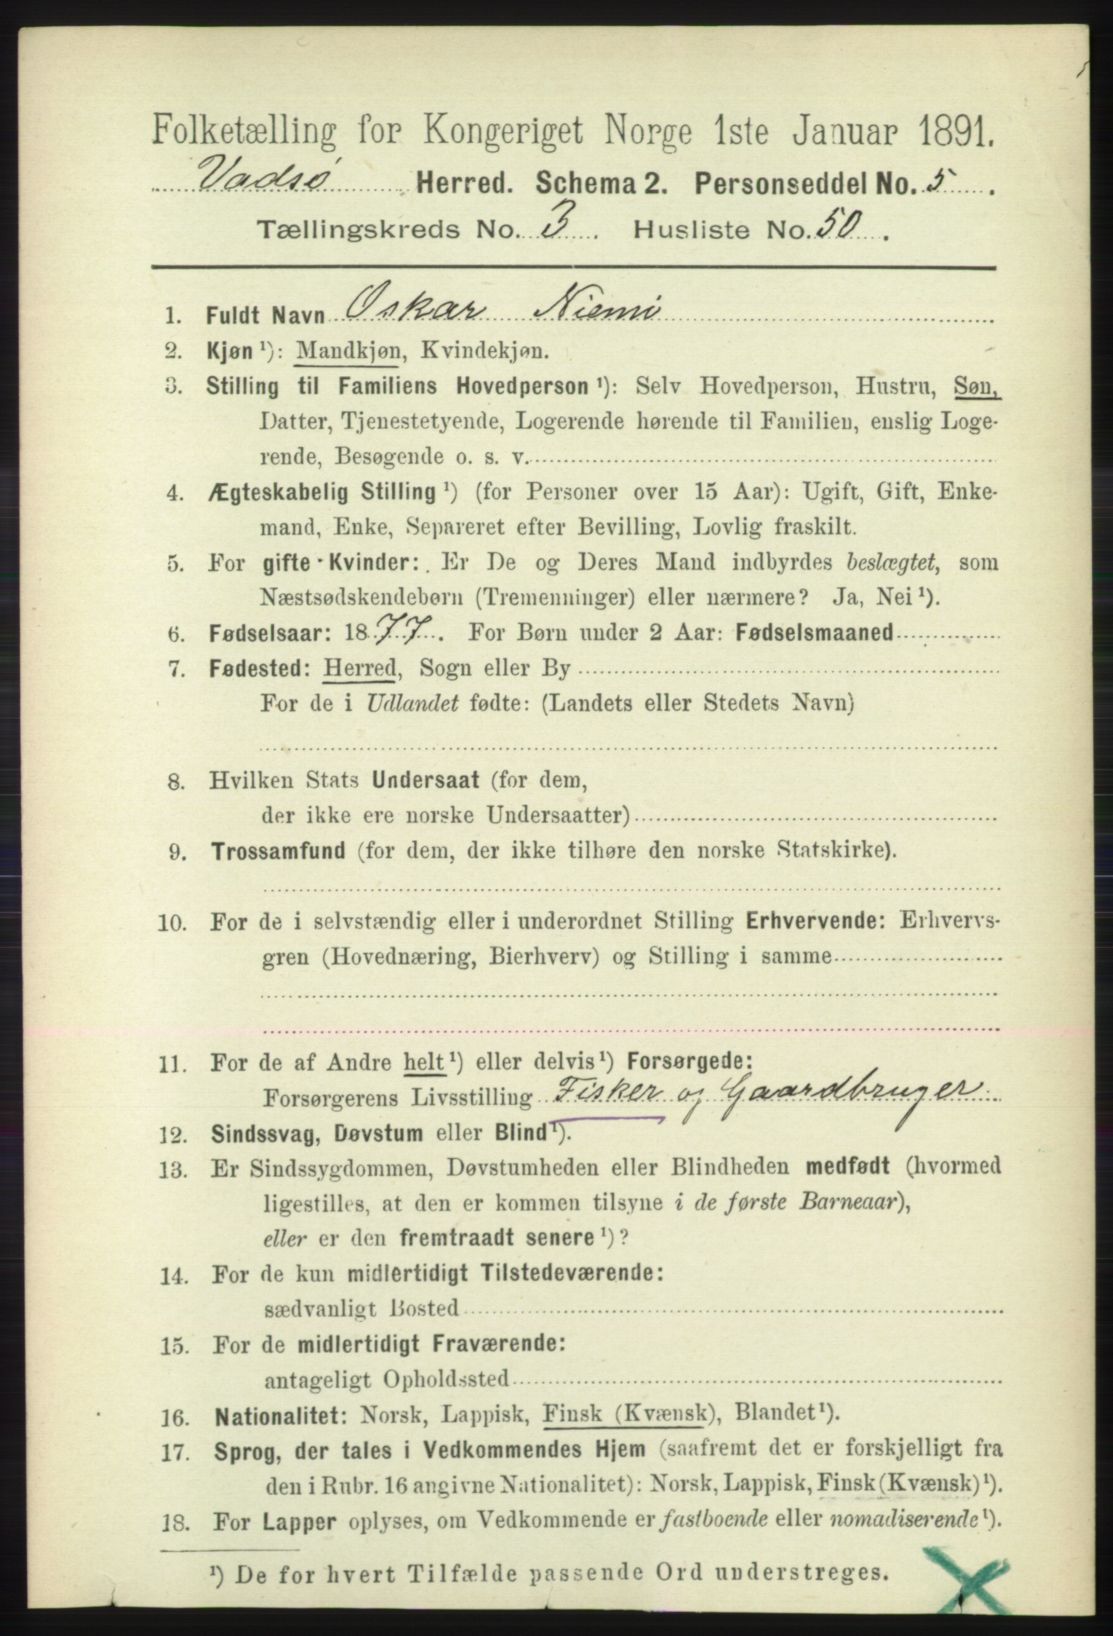 Folketælling for Kongeriget Norge 1ste Januar 1891.
Vadsø Herred. Schema 2. Personseddel No. 5.
Tællingskreds No. 3. Husliste No. 50.
1. Fuldt Navn Oskar Niemi
2. Kjøn ¹): Mandkjøn, Kvindekjøn.
3. Stilling til Familiens Hovedperson ¹): Selv Hovedperson, Hustru, Søn,
Datter, Tjenestetyende, Logerende hørende til Familien, enslig Loge-
rende, Besøgende o. s. v.
4. Ægteskabelig Stilling ¹) (for Personer over 15 Aar): Ugift, Gift, Enke-
mand, Enke, Separeret efter Bevilling, Lovlig fraskilt.
5. For gifte Kvinder: Er De og Deres Mand indbyrdes beslægtet, som
Næstsødskendebørn (Tremenninger) eller nærmere? Ja, Nei ¹).
6. Fødselsaar: 1877. For Børn under 2 Aar: Fødselsmaaned
7. Fødested: Herred, Sogn eller By
For de i Udlandet fødte: (Landets eller Stedets Navn)
8. Hvilken Stats Undersaat (for dem,
der ikke ere norske Undersaatter)
9. Trossamfund (for dem, der ikke tilhøre den norske Statskirke).
10. For de i selvstændig eller i underordnet Stilling Erhvervende: Erhvervs-
gren (Hovednæring, Bierhverv) og Stilling i samme
11. For de af Andre helt ¹) eller delvis ¹) Forsørgede:
Forsørgerens Livsstilling Fisker og Gaardbruger
12. Sindssvag, Døvstum eller Blind ¹).
13. Er Sindssygdommen, Døvstumheden eller Blindheden medfødt (hvormed
ligestilles, at den er kommen tilsyne i de første Barneaar),
eller er den fremtraadt senere ¹)?
14. For de kun midlertidigt Tilstedeværende:
sædvanligt Bosted
15. For de midlertidigt Fraværende:
antageligt Opholdssted
16. Nationalitet: Norsk, Lappisk, Finsk (Kvænsk), Blandet ¹).
17. Sprog, der tales i Vedkommendes Hjem (saafremt det er forskjelligt fra
den i Rubr. 16 angivne Nationalitet): Norsk, Lappisk, Finsk (Kvænsk) ¹).
18. For Lapper oplyses, om Vedkommende er fastboende eller nomadiserende ¹).
¹) De for hvert Tilfælde passende Ord understreges.